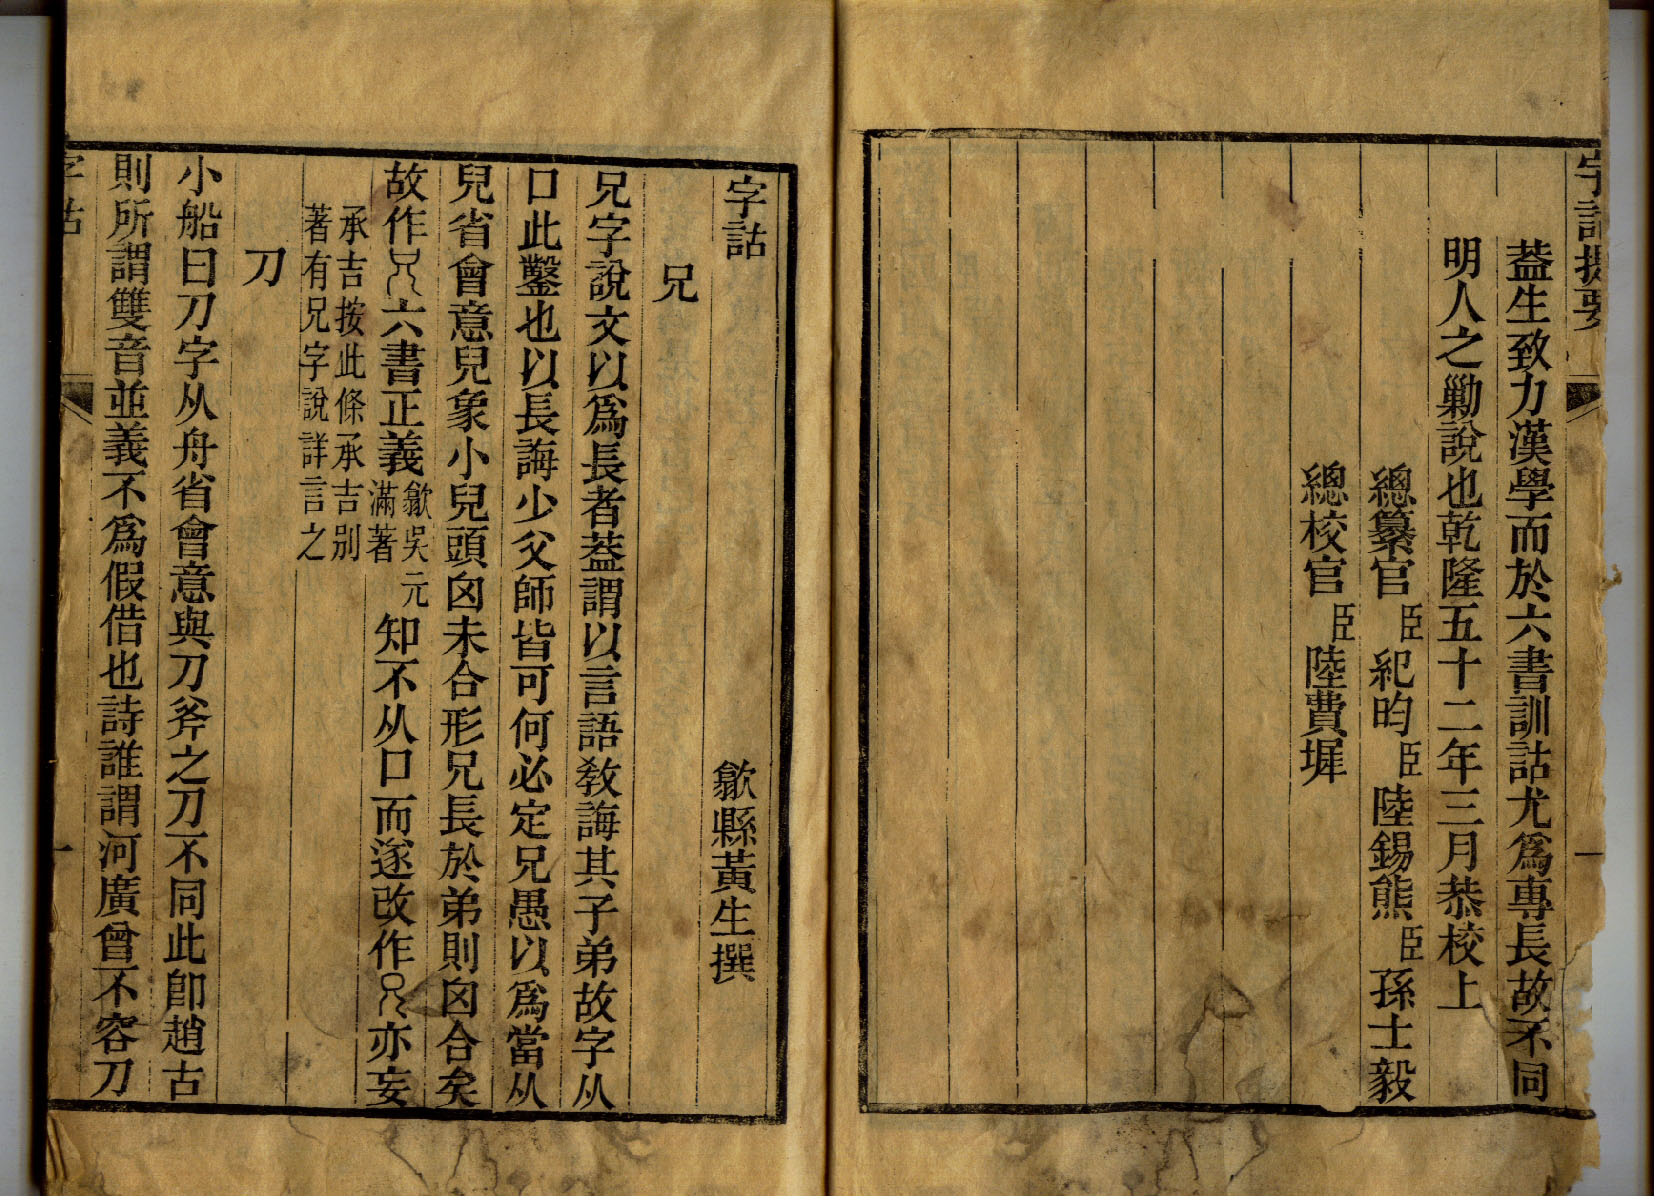 字詁提要
一
蓋生致力漢學而於六書訓詁尤爲專長故不同
明人之勦說也乾隆五十二年三月恭校上
總纂官臣紀昀臣陸錫熊臣孫士毅
總校官臣陸費墀
字詁
歙縣黃生撰
兄
兄字說文以爲長者葢謂以言語敎誨其子弟故字从
口此鑿也以長誨少父師皆可何必定兄愚以爲當从
兒省會意兒象小兒頭囟未合形兄長於弟則囟合矣
故作兄六書正義歙吳元滿著知不从口而遂改作兄亦妄
承吉按此條承吉别
著有兄字說詳言之
刀
小船曰刀字从舟省會意與刀斧之刀不同此卽趙古
則所謂雙音並義不爲假借也詩誰謂河廣曾不容刀
字詁
一